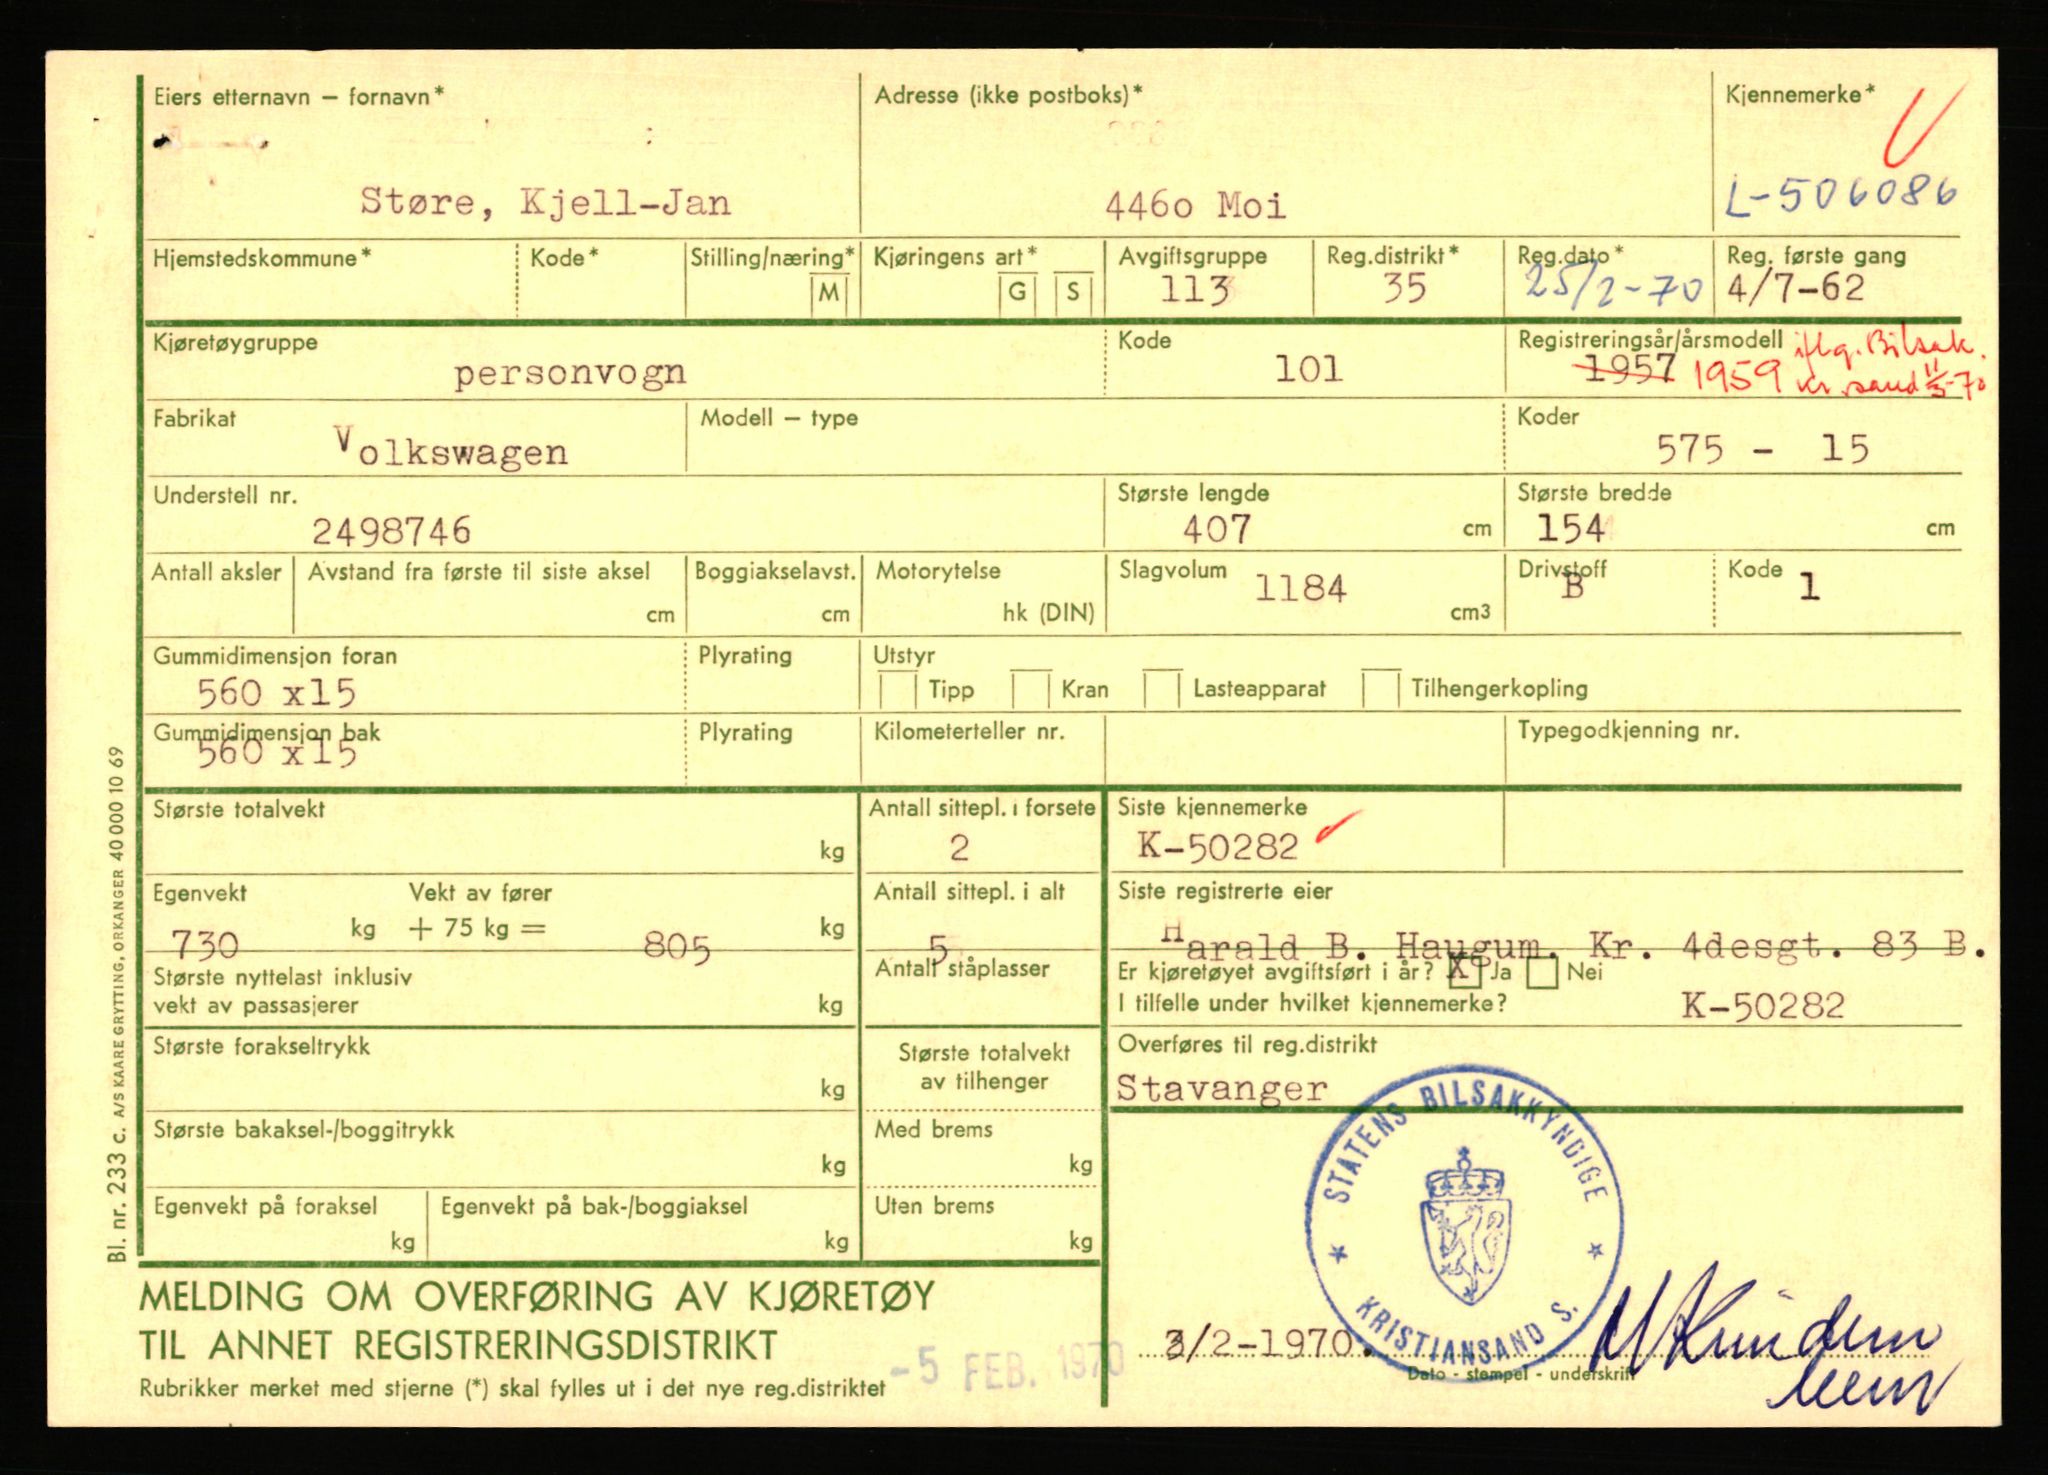 Eiers etternavn — fornavn*
Adresse (ikke postboks)*
Kjennemerke*
Støre, Kjell-Jan
446o Moi
L-506086
Hjemstedskommune*
Kode*
Stilling/næring*
M
Kjøringens art*
G
S
Avgiftsgruppe
113
Reg.distrikt*
35
Reg.dato*
25/2-70
Reg. første gang
4/7-62
Kjøretøygruppe
personvogn
Kode
101
Registreringsår/årsmodell
1957 1959 iflg. Bilsak.
Kr.sand 11/3-70
Fabrikat
Volkswagen
Modell — type
Koder
575 - 15
Understell nr.
2498746
Største lengde
407 cm
Største bredde
154 cm
Antall aksler
Avstand fra første til siste aksel
cm
Boggiakselavst.
cm
Motorytelse
hk (DIN)
Slagvolum
1184
cm3
Drivstoff
B
Kode
1
Gummidimensjon foran
560 x15
Plyrating
Utstyr
Tipp
Kran
Lasteapparat
Tilhengerkopling
Gummidimensjon bak
560 x15
Plyrating
Kilometerteller nr.
Typegodkjenning nr.
Største totalvekt
kg
Antall sittepl. i forsete
2
Siste kjennemerke
K-50282
Egenvekt
730 kg
Vekt av fører
+ 75 kg = 805 kg
Antall sittepl. i alt
5
Siste registrerte eier
Harald B. Haugum. Kr. 4desgt. 83 B.
Største nyttelast inklusiv
vekt av passasjerer
kg
Antall ståplasser
Er kjøretøyet avgiftsført i år? X Ja Nei
I tilfelle under hvilket kjennemerke? K-50282
Største forakseltrykk
kg
Største totalvekt
av tilhenger
Overføres til reg.distrikt
Stavanger
Største bakaksel-/boggitrykk
kg
Med brems
kg
Egenvekt på foraksel
kg
Egenvekt på bak-/boggiaksel
kg
Uten brems
kg
STATENS BILSAKKYNDIGE
KRISTIANSAND S.
MELDING OM OVERFØRING AV KJØRETØY
TIL ANNET REGISTRERINGSDISTRIKT
Rubrikker merket med stjerne (*) skal fylles ut i det nye reg.distriktet
-5 FEB. 1970
3/2-1970.
Dato - stempel - underskrift
Bl. nr. 233 c. A/S KAARE GRYTTING, ORKANGER 40 000 10 69